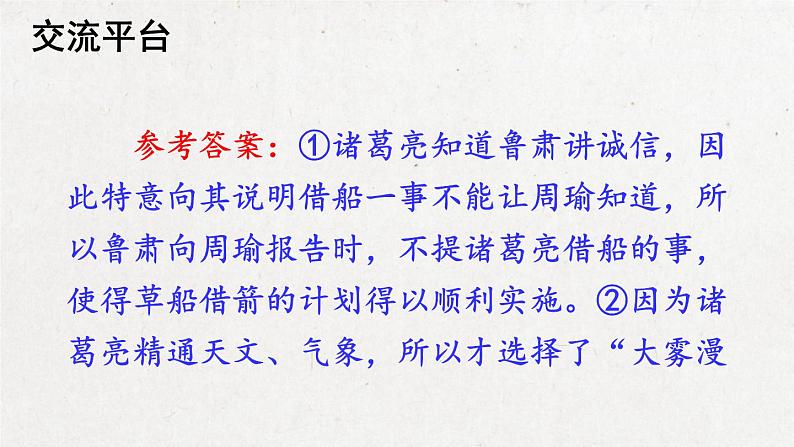 交流平台
参考答案：①诸葛亮知道鲁肃讲诚信，因
此特意向其说明借船一事不能让周瑜知道，所
以鲁肃向周瑜报告时，不提诸葛亮借船的事，
使得草船借箭的计划得以顺利实施。②因为诸
葛亮精通天文、气象，所以才选择了“大雾漫